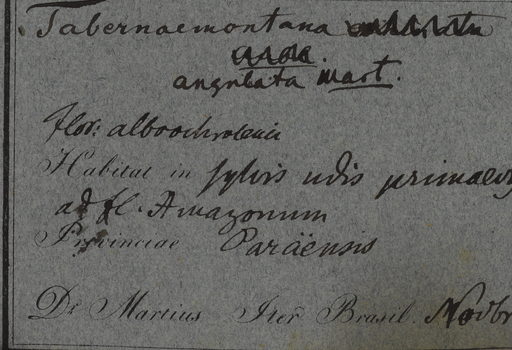 Tabernaemontana
angulata Mart.
flor: alboochroleucis
Habitat in sylvis udis primaev
ad fl. Amazonum
Provinciae Paraënsis
Dr Martius Iter Brasil. Novbr